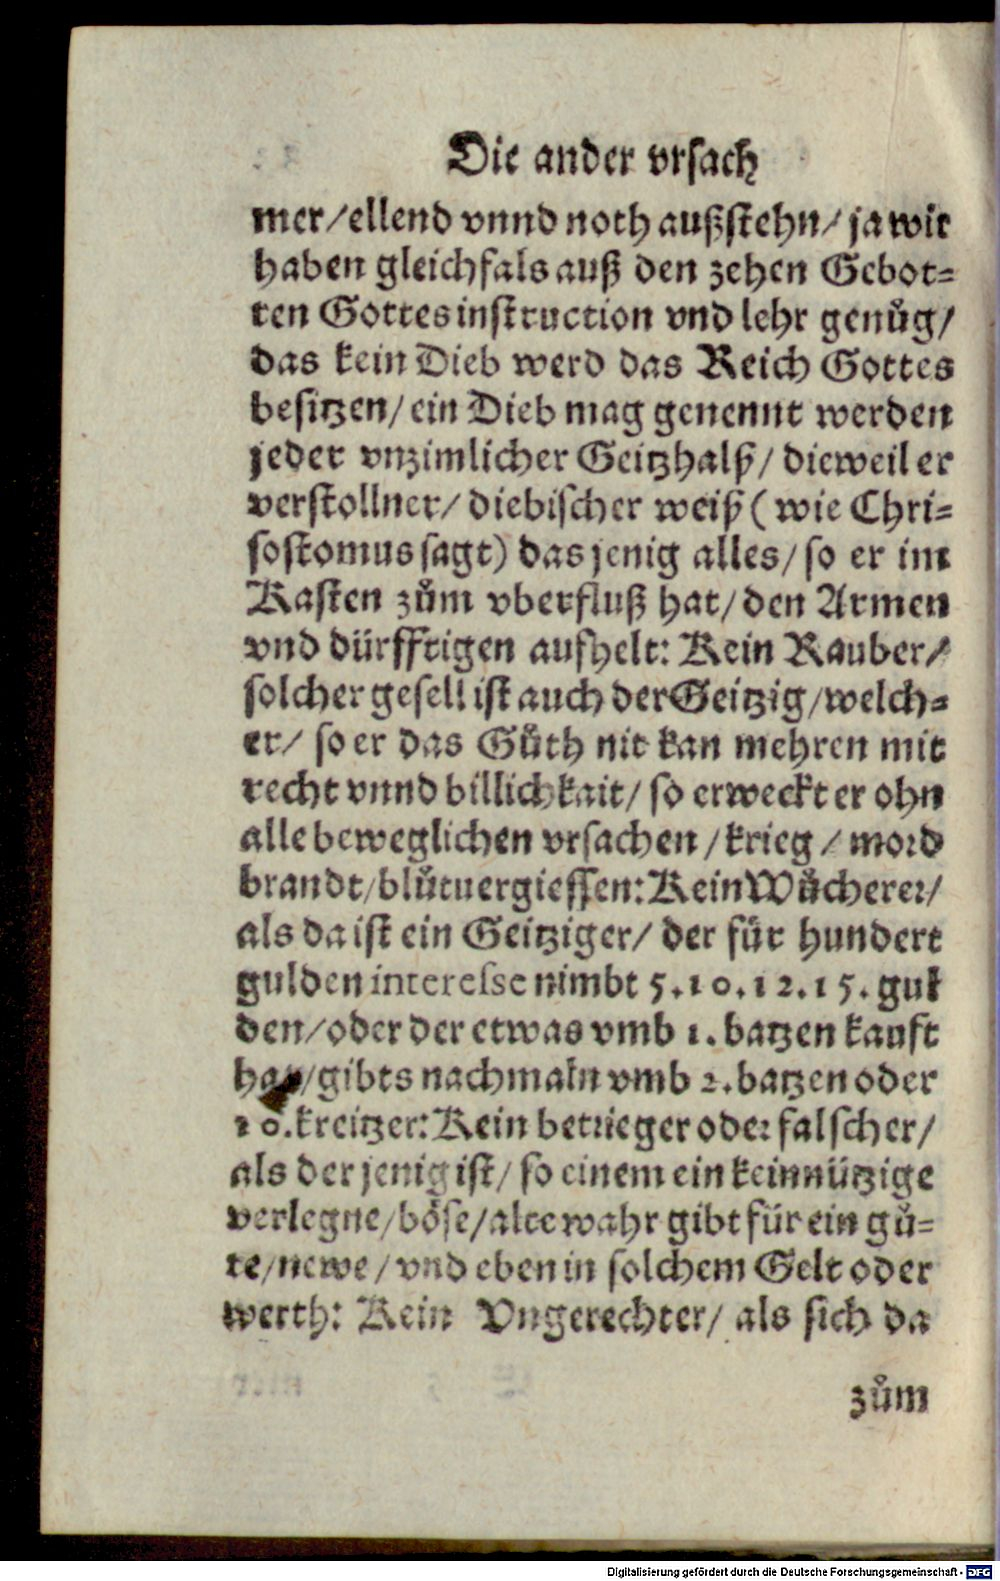 Die ander vrsach
mer/ellend vnnd noth außstehn/ ja wir
haben gleichfals auß den zehen Gebot=
ten Gottes instruction vnd lehr genůg/
das kein Dieb werd das Reich Gottes
besitzen/ ein Dieb mag genennt werden
jeder vnzimlicher Geitzhalß/ dieweil er
verstollner/ diebischer weiß (wie Chri=
sostomus sagt) das jenig alles/ so er im
Kasten zům vberfluß hat/ den Armen
vnd dürfftigen aufhelt: Kein Rauber/
solcher gesell ist auch der Geitzig/welch=
er/ so er das Gůth nit kan mehren mit
recht vnnd billichkait/ so erweckt er ohn
alle beweglichen vrsachen /krieg / mord
brandt/blůtuergiessen: Kein Wůcherer/
als da ist ein Geitziger/ der für hundert
gulden interesse nimbt 5.10.12.15. gul
den/oder der etwas vmb 1. batzen kauft
hat/gibts nachmaln vmb 2. batzen oder
10. kreitzer: Kein betrieger oder falscher/
als der jenig ist/ so einem ein keinnützige
verlegne/böse/alte wahr gibt für ein gů=
te/newe/ vnd eben in solchem Gelt oder
werth: Kein Vngerechter/ als sich da
zům
Digitalisierung gefördert durch die Deutsche Forschungsgemeinschaft - DFG